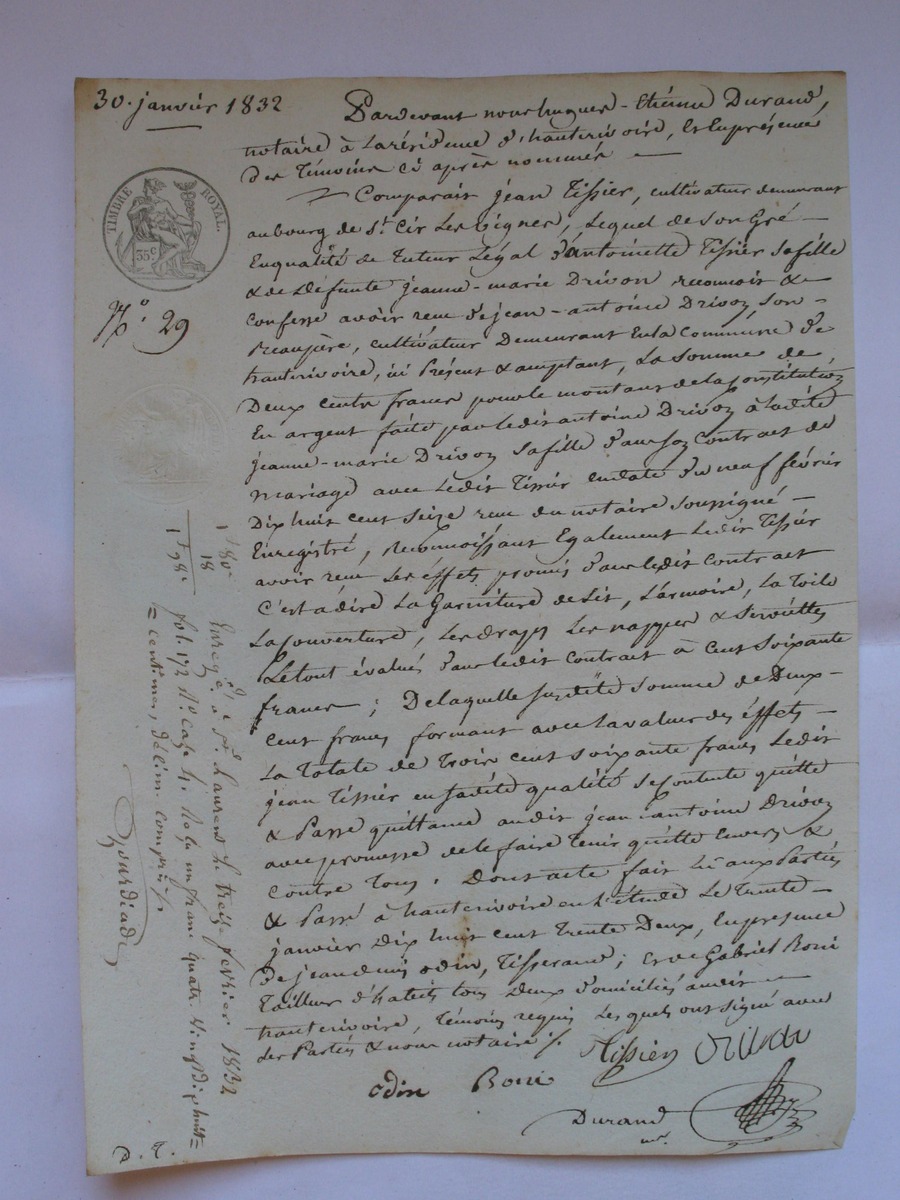 30. janvier 1832
Pardevant nous hugues-Etiénne Durand,
notaire à la résidence d'hauterivoire, Et En présence
des Témoins ci après nommés —
Comparait jean Tissier, cultivateur demeurant
au bourg de St. Cir Les Vignes, Lequel de Son Gré —
En qualité de Tuteur Légal d'antoinette Tissier Sa fille
& de Défunte jeanne-marie Drivon reconnoit &
Confesse avoir reçu de jean-antoine Drivon Son —
Beaupère, cultivateur Demeurant En la Commune d'
hauterivoire, ici Présent & acceptant, La Somme de
Deux cents francs pour le montant de la Constitution
En argent faite par ledit antoine Drivon à ladite
jeanne-marie Drivon Sa fille dans son Contrat de
mariage avec Ledit Tissier en date du neuf février
Dix huit cent Seize reçu du notaire soussigné —
Enregistré, Reconnoissant Egalement Ledit Tissier
avoir reçu Les éffets promis dans ledit contrat
C'est à dire La Garniture de Lit, L'armoire, La Toile
La Couverture, Les draps, Les nappes & Serviéttes
Le tout évalués dans ledit contrat à cent soixante
francs ; De laquelle Susdite Somme de Deux —
Cent francs formant avec la valeur des éffets —
La Totale de Trois cent soixante francs Ledit
jean Tissier en sadite qualité Se Contente quitte
& Passe quittance audit jean-antoine Drivon
avec promesse de le faire Tenir quitte Envers &
Contre Tous. Dont acte fait Lu aux Parties
& Passé à hauterivoire en L'étude Le Trente —
janvier Dix huit cent trente Deux, En présence
de jean denis odin, Tisserand ; et de Gabriel Boni
Tailleur d'habits tous Deux domiciliés audit —
hauterivoire, Témoins requis Les quels ont signé avec
les Parties & nous notaire ./.
Tissier Drivon
odin Boni
Durand
nre.
TIMBRE ROYAL.
35 c
No. 29
1 f 80 c
18
1 f 98 c
Enregé. à St. Laurent le treize fevrier 1832
fol. 173 Vo. case 4. Reçu un franc quatre vingt dix huit =
= centimes, décime compris ./.
D. T.